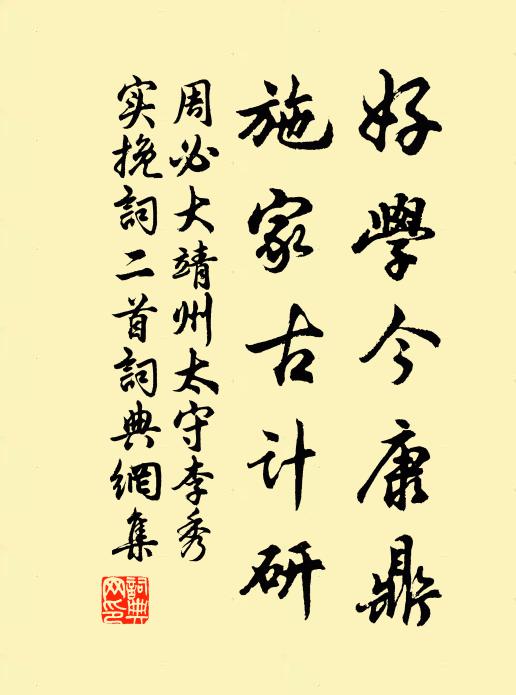 好學今康鼎
施家古计研
周必大靖州太守李秀
实挽詞二首詞典網集
詞典网印